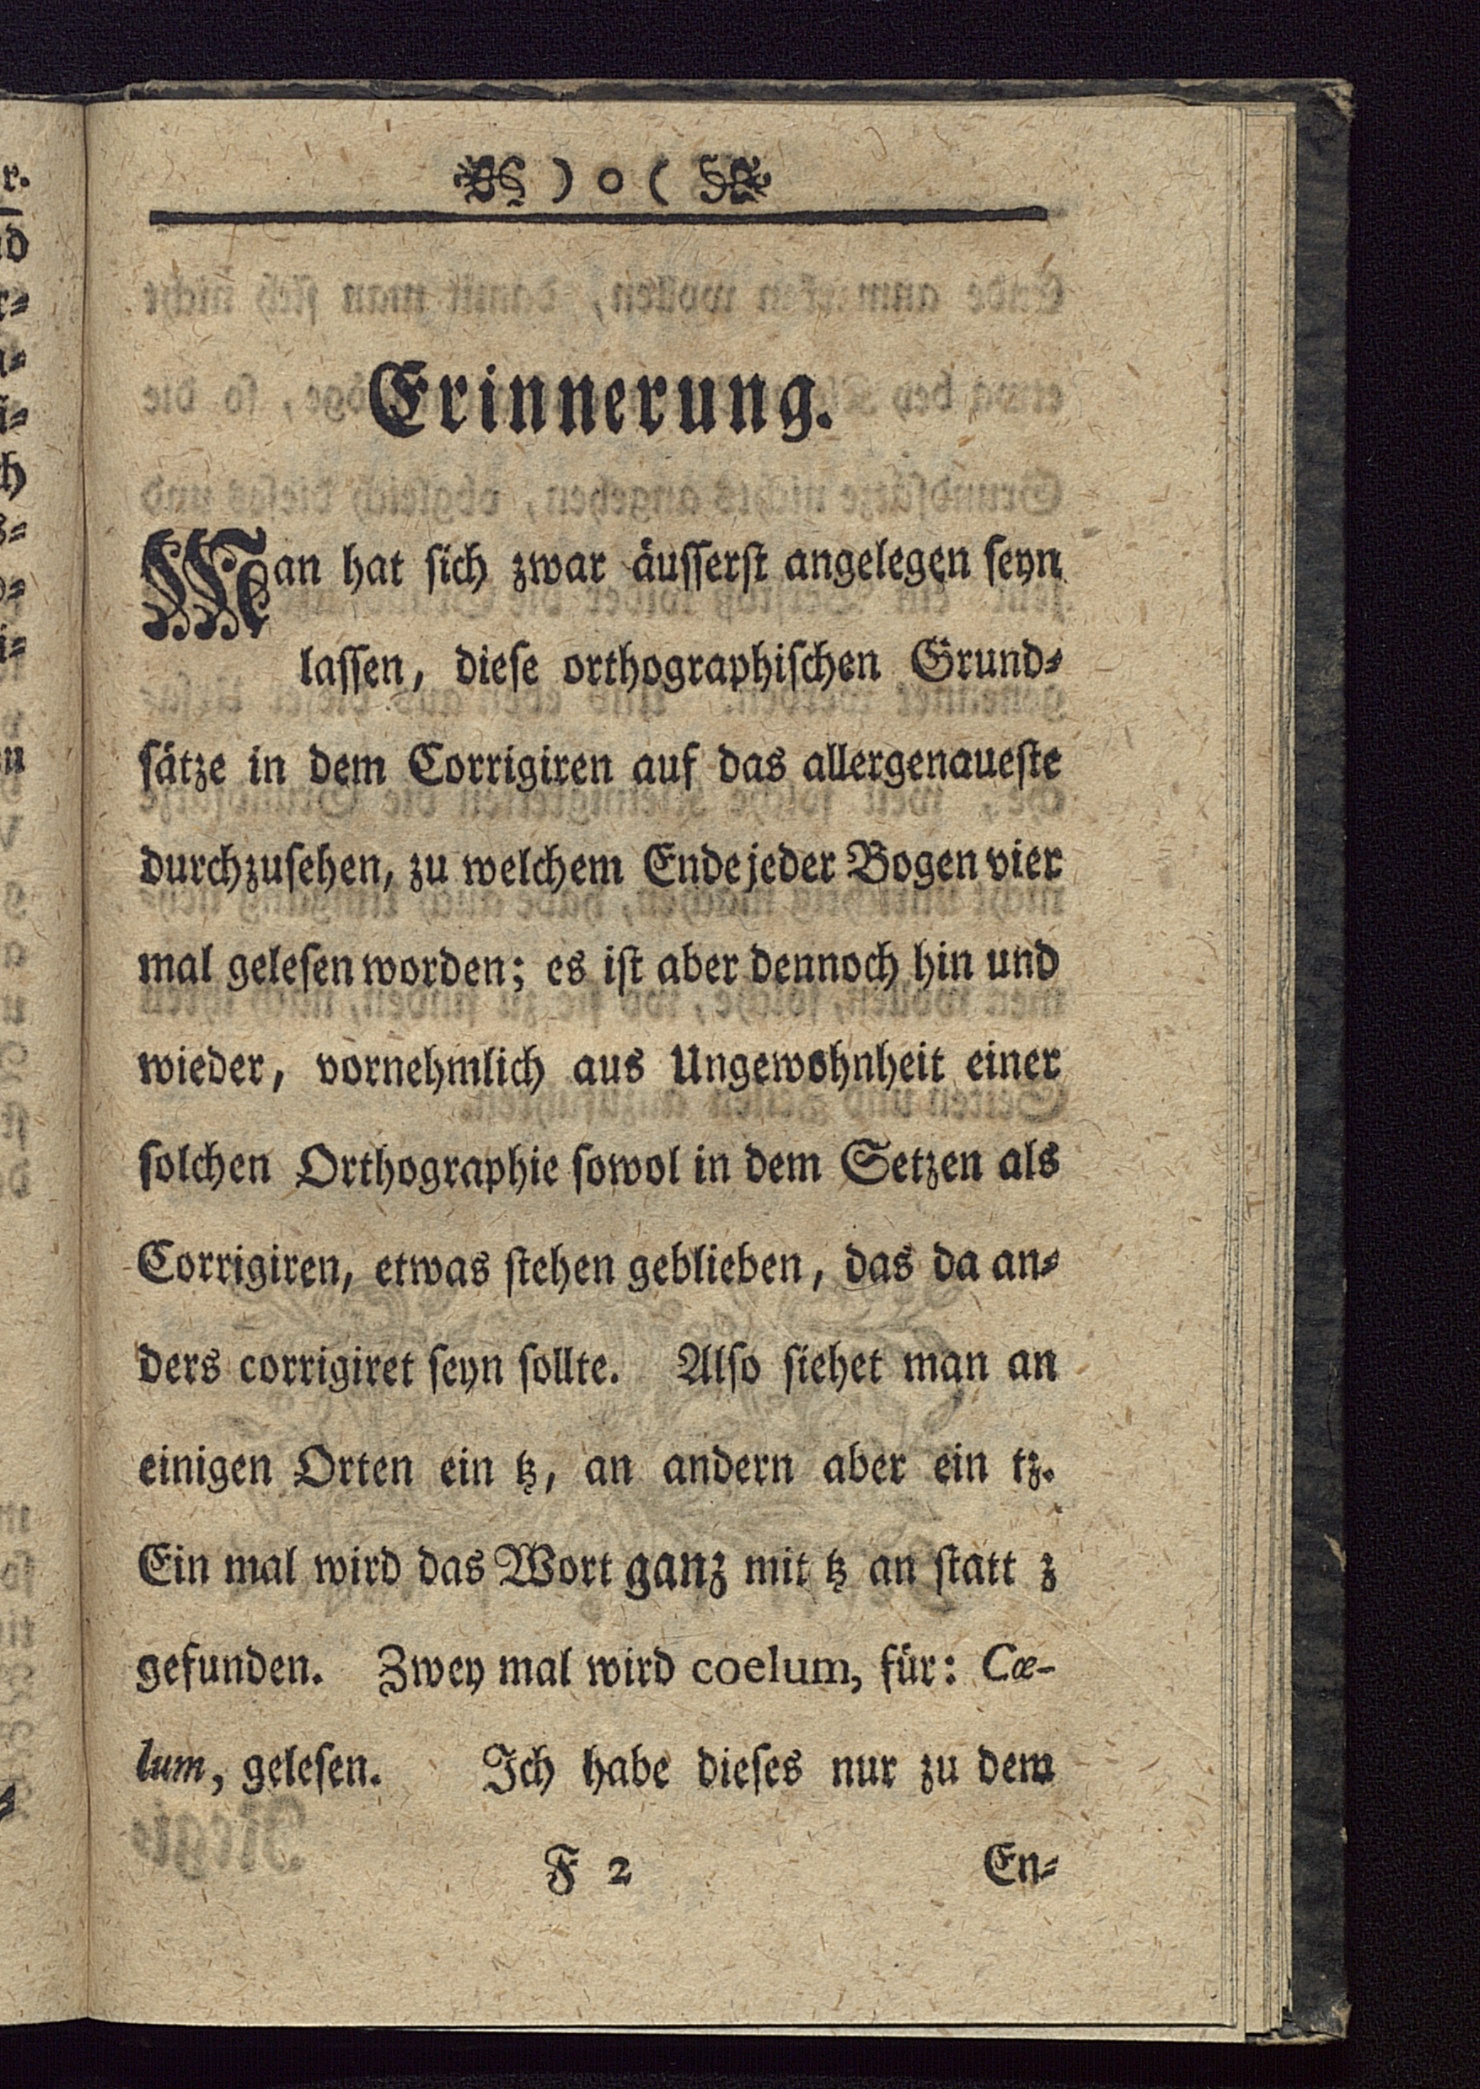 ) o (
Erinnerung.
Man hat sich zwar äusserst angelegen seyn
lassen, diese orthographischen Grund-
sätze in dem Corrigiren auf das allergenaueste
durchzusehen, zu welchem Ende jeder Bogen vier
mal gelesen worden; es ist aber dennoch hin und
wieder, vornehmlich aus Ungewohnheit einer
solchen Orthographie sowol in dem Setzen als
Corrigiren, etwas stehen geblieben, das da an-
ders corrigiret seyn sollte. Also siehet man an
einigen Orten ein tz, an andern aber ein tz.
Ein mal wird das Wort ganz mit tz an statt z
gefunden. Zwey mal wird coelum, für: Cœ-
lum, gelesen. Ich habe dieses nur zu dem
F 2 En-